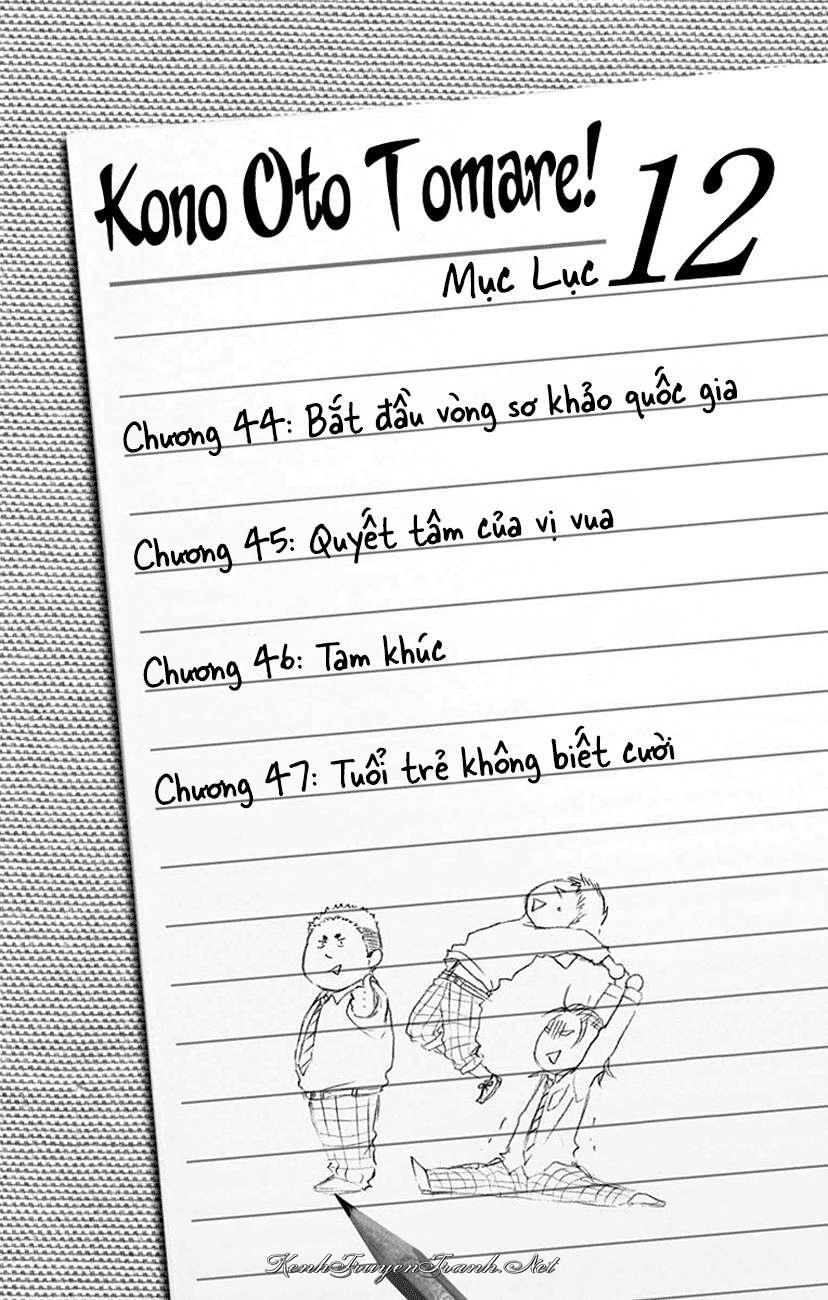 Kono Oto Tomare! 12
Mục Lục
Chương 44: Bắt đầu vòng sơ khảo quốc gia
Chương 45: Quyết tâm của vị vua
Chương 46: Tam khúc
Chương 47: Tuổi trẻ không biết cười
KenhTruyenTranh.Net